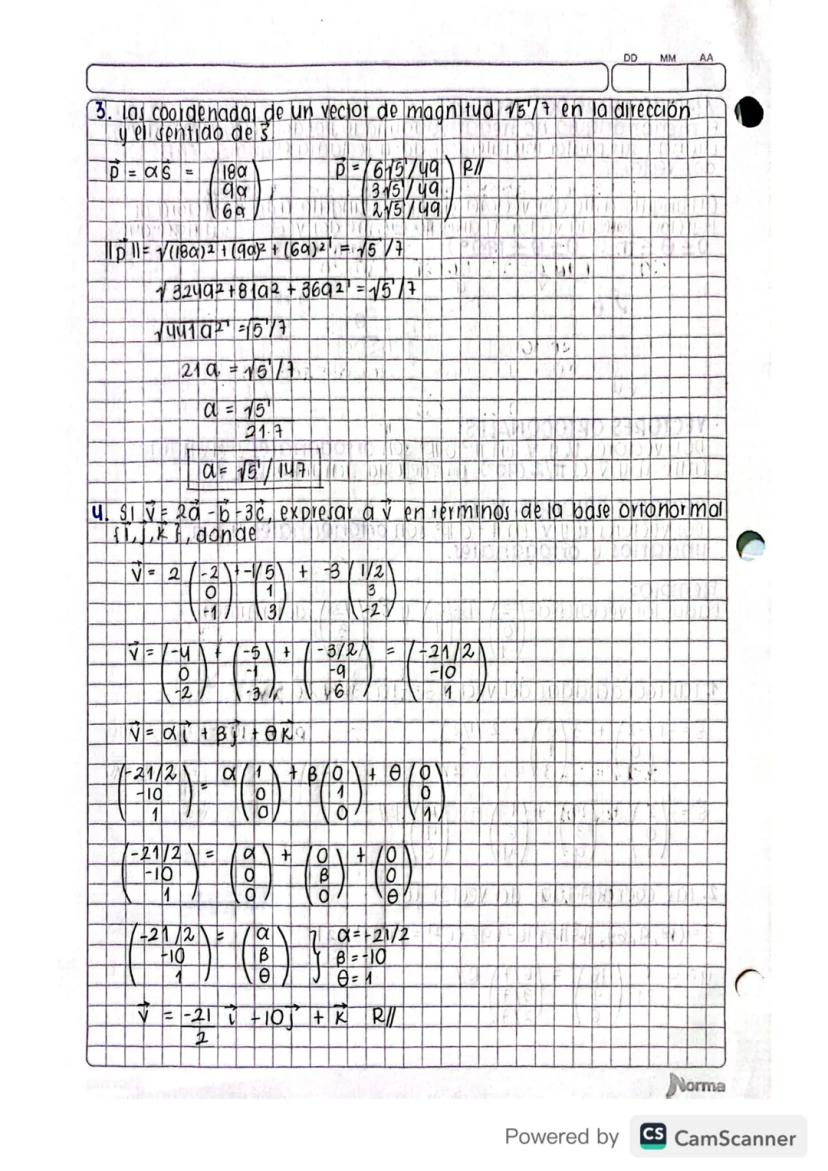 DD MM AA
3. las coordenadas de un vector de magnitud √5/7 en la dirección
y el sentido de s⃗.
p⃗ = αs⃗ = (18α 9α 6α), p⃗ = (6√5/49 3√5/49 2√5/49) R//
||p⃗|| = √(18α)² + (9α)² + (6α)² = √5/7
√324α² + 81α² + 36α² = √5/7
√441α² = √5/7
21α = √5/7
α = √5
21·7
α = √5/147
4. Si v⃗ = 2a⃗ - b⃗ - 3c⃗, expresar a v⃗ en términos de la base ortonormal
{i⃗, j⃗, k⃗}, donde
v⃗ = 2 (-2 0 -1) + -1 (5 1 3) + -3 (1/2 3 -2)
v⃗ = (-4 0 -2) + (-5 -1 -3) + (-3/2 -9 6) = (-21/2 -10 1)
v⃗ = αi⃗ + βj⃗ + θk⃗
(-21/2 -10 1) = α (1 0 0) + β (0 1 0) + θ (0 0 1)
(-21/2 -10 1) = (α 0 0) + (0 β 0) + (0 0 θ)
(-21/2 -10 1) = (α β θ) } α = -21/2 β = -10 θ = 1
v⃗ = -21/2 i⃗ - 10j⃗ + k⃗ R//
Norma
Powered by CS CamScanner